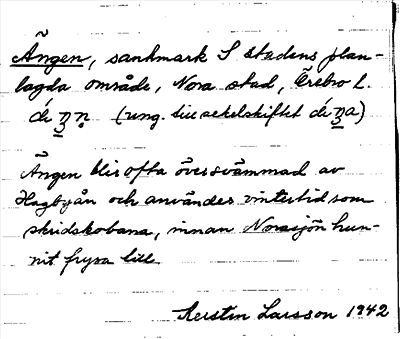 Ängen, sankmark S stadens plan-
lagda område, Nora stad, Örebro l.
(ung. till sekelskiftet
Ängen blir ofta översvämmad av
Hagbyån och användes vintertid som
skridskobana, innan Norasjön hun-
nit frysa till.
Kerstin Larsson 1942